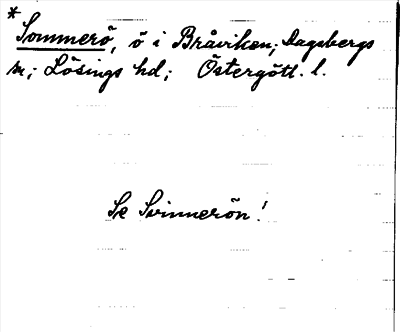 *
Sommerö, ö i Bråviken; Dagsbergs
sn; Lösings hd; Östergötl. l.
Se Svinnerön!